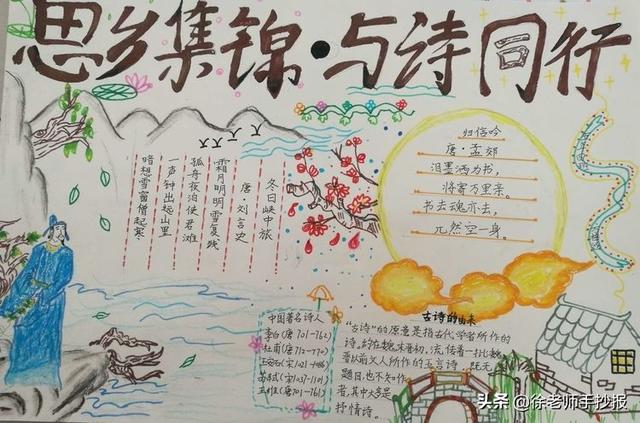 思乡集锦·与诗同行
冬日峡中旅
唐·刘言史
霜月明明雪复残
孤舟夜泊使君滩
一声钟出远山里
暗想雪窗僧起寒
归信吟
唐·孟郊
泪墨洒为书,
将寄万里亲。
书去魂亦去,
兀然空一身。
中国著名诗人
李白(唐701-762)
杜甫(唐712-770)
王安石(宋1021-1086)
苏轼(宋1037-1101)
王维(唐701-761)
古诗的由来
"古诗"的原意是指古代学者所作的
诗,约在魏末晋初,流传着一批魏
晋以前文人所作的五言诗,既无
题目,也不知作
者,其中大多是
抒情诗。
头条 @徐老师手抄报